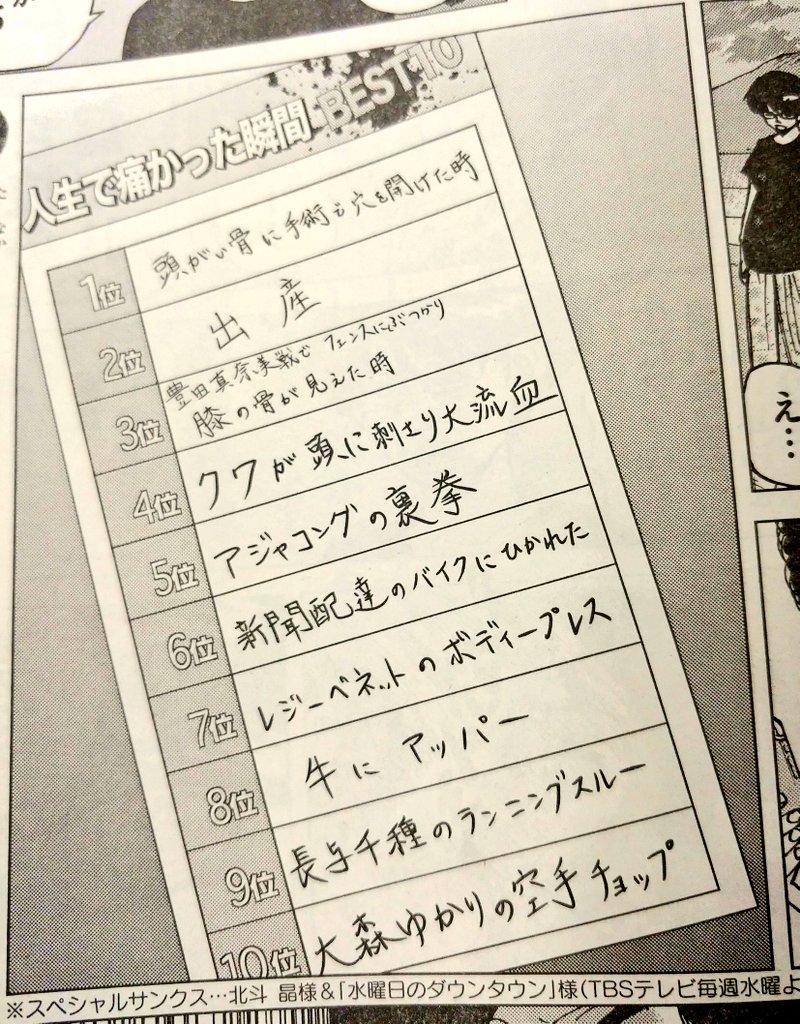 人生で痛かった瞬間 BEST10
1位 頭がい骨に手術で穴を開けた時
2位 出産
3位 豊田真奈美戦でフェンスにぶつかり
膝の骨が見えた時
4位 クワが頭に刺さり大流血
5位 アジャコングの裏拳
6位 新聞配達のバイクにひかれた
7位 レジーベネットのボディープレス
8位 牛にアッパー
9位 長与千種のランニングスルー
10位 大森ゆかりの空手チョップ
え…
※スペシャルサンクス…北斗 晶様&「水曜日のダウンタウン」様(TBSテレビ毎週水曜よ